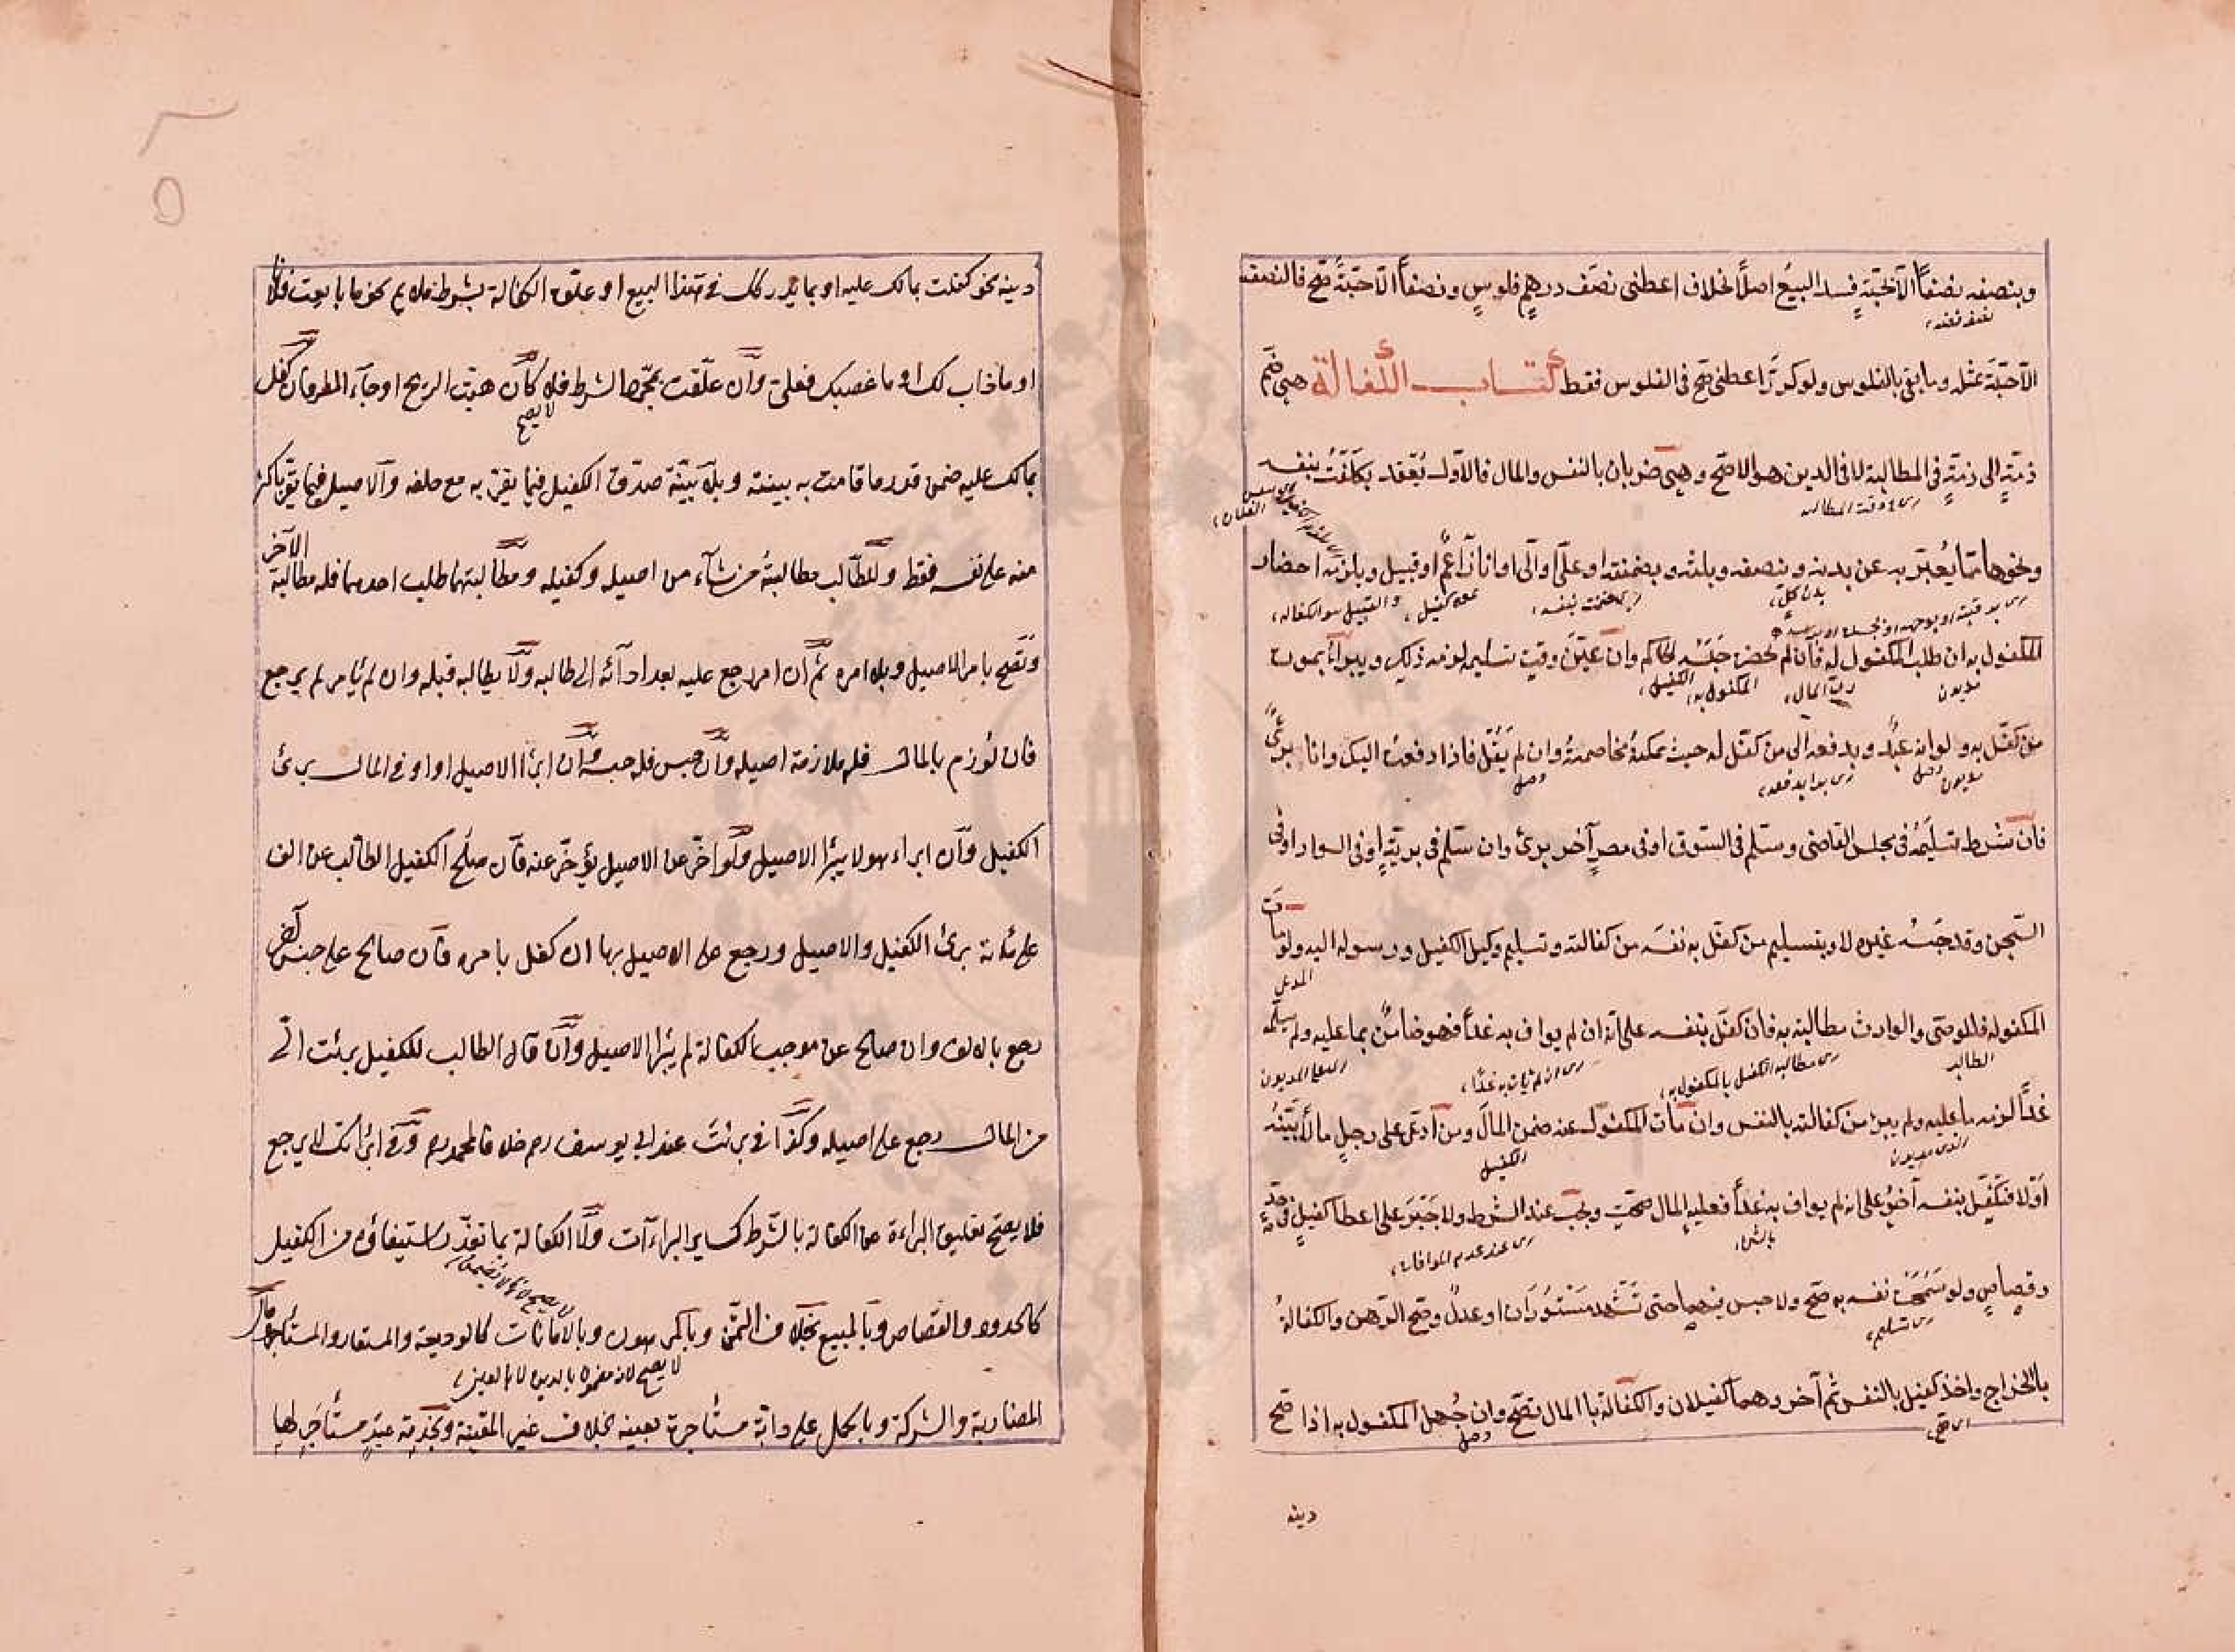 وبنصفه نصفاً الّا حبّةٍ فسد البيعُ اصلاً بخلاف اعطنى نصف درهمٍ فلوسٍ ونصفاً الّا حبّةً صحّ فالنصف
نصف فضه
الّا حبّة بمثله وما بقى بالفلوس ولو كرّر اعطنى صحّ فى الفلوس فقط كتاب الكفالة هى ضمّ
ذمّةٍ الى ذمّةٍ فى المطالبة لا فى الدين هو الاصح وهى ضربان بالنفس والمال فالاوّل يُعقد بكَفَلْتُ بنفسه
ونحوها ممّا يُعبّر به عن بدنه وبنصفه وبثلثه وبضمنته او علىَّ او الىَّ او انا زعيمٌ او قبيل ويلزمه احضار
بدن كلّ
المكفول به ان طلب المكفول له فان لم يحضر حَبَسَه الحاكم وان عيّن وقت تسليمه لزمه ذلك ويبرأُ بموت
مديون
ربّ المال
المكفول به
الكفيل
من كفّل به ولو انه عبدٌ وبدفعه الى من كفّل له حيث يمكنهُ مخاصمتهُ وان لم يَقُل فاذا دفعتُ اليك وانا برئٌ
مديون
وصل
وصل
فان شرط تسليمهُ فى مجلس القاضى وسلّم فى السوق او فى مصرٍ آخر برئ وان سلّم فى بريّةٍ او فى السواد او فى
السّجن وقد حبَسهُ غيره لا وبتسليم من كفّل به نفسَه من كفالته وتسليم وكيل الكفيل ورسوله اليه ولو مات
المكفول له فللوصىّ والوارث مطالبته به فان كفّل بنفسه على انّه ان لم يواف به غداً فهو ضامنٌ بما عليه ولم يسلّمه
الطالب
اى مطالبة الكفيل بالمكفول به
غداً لزمه ما عليه ولم يبرء من كفالته بالنفس وان مات المكفول عنه ضمن المال ومن ادّعى على رجلٍ مالاً بيّنهُ
الكفيل
اوّلا فتكفّل بنفسه آخر على انه لم يواف به غداً فعليهِ المال صحّت ويجب عند الشرط ولا جَبْرَ على اعطاء كفيلٍ فى حدٍّ
اى عند عدم الموافات
وقصاصٍ ولو سَمَحَتْ نفسه به صحّ ولا حبس فيهما حتى تشهد مَسْتُورَان او عدلٌ وصحّ الرّهن والكفالةُ
اى تسليم
بالخراج واخذ كفيل بالنفس ثم آخر وهما كفيلان والكفالة با المال تصحّ وان جُهل المكفول به اذا صحّ
دينه
دينه نحو كفلت بمالك عليه او بما يدركك فى هذا البيع او علّق الكفالة بشرط ملايم نحو ما بايعت فلانا
او ما ذاب لك او ما غصبك فعلىَّ وان علّقت بمجرّد الشرط فلا كان هبّت الريح او جاء المطر فان كفل
لا يصح
بمالك عليه ضمن قدر ما قامت به بيّنته وبلا بيّنة صدّق الكفيل فيما يقرّ به مع حلفه والاصيل فيما يقرّ باكثر
منه على نفسه فقط وللطّالب مطالبةُ من شاء من اصيله وكفيله ومطالبتهما طلب احدهما فله مطالبة الآخر
وتصحّ بامر الاصيل وبلا امره ثمّ ان امر رجع عليه بعد ادآئه الى طالبه ولا يطالبه قبله وان لم يأمر لم يرجع
فان لُوزم بالمال فله ملازمة اصيله وان حُبس فله حبسه وان ابرأ الاصيل او اوفى المال برئ
الكفيل وان ابراء هو لا يبرأ الاصيل ولو اخّر عن الاصيل يؤخّر عنه فان صالح الكفيل الطالب عن الف
على مائة برئ الكفيل والاصيل ورجع على الاصيل بها ان كفل بامره فان صالح على جنس آخر
رجع بالالف وان صالح عن موجب الكفالة لم يبرأ الاصيل وان قال الطالب للكفيل برئت الىّ
من المال رجع على اصيله وكذا فى برئت عند ابى يوسف رح خلافا لمحمد رح وفى ابرأتك لا يرجع
فلا يصحّ تعليق البراءة عن الكفالة بالشّرط كساير البراءآت ولا الكفالة بما تعذّر استيفاؤه من الكفيل
كالحدود والقصاص وبالمبيع بخلاف الثّمن وبالمرهون وبالامانات كالوديعة والمستعار والمستأجر ومال
المضاربة والشركة وبالحمل على دابّة مستأجرة بعينه بخلاف غير المعيّنة وبخدمة عبدٍ مستأجَرٍ لها